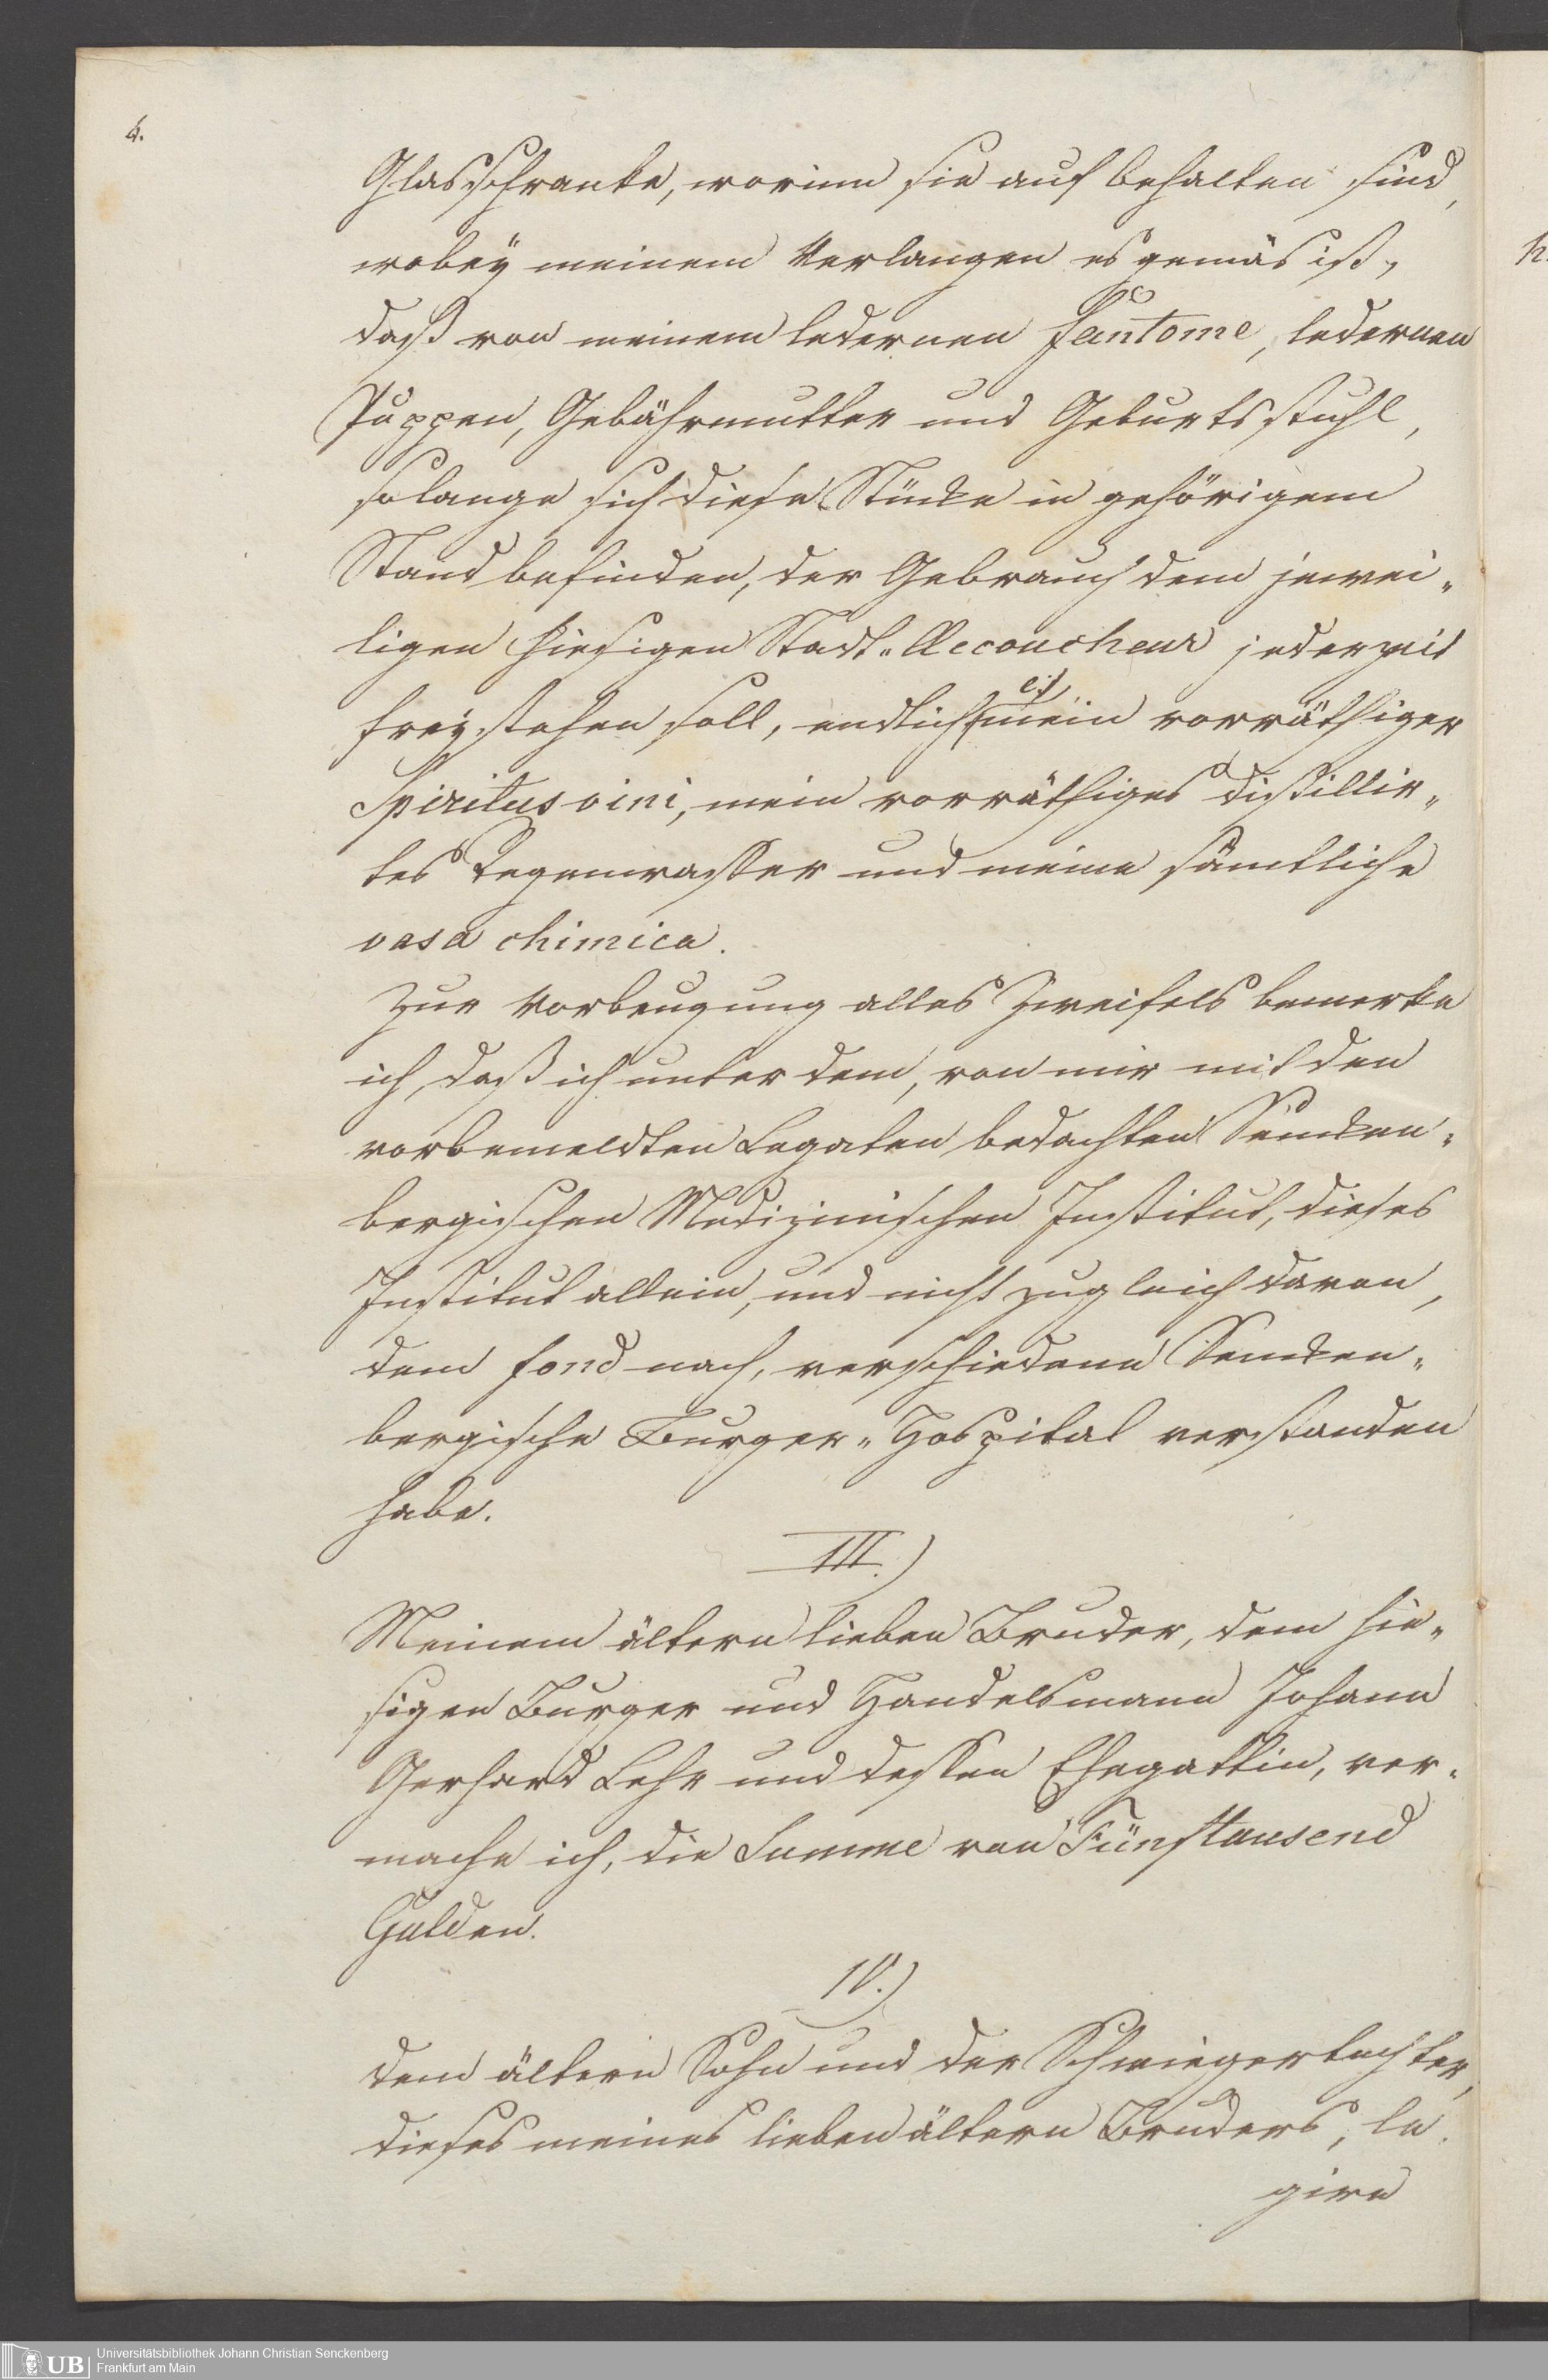 4.
Glasschranke, worinn sie auf behalten sind,
wobeÿ meinem Verlangen es gemäs ist,
daß von meinem ledernen Fantome, ledernen
Puppen, Gebährmutter und Geburtsstuhl,
solange sich diese Stücke in gehörigem
Stand befinden, der Gebrauch dem jewei-
ligen hiesigen Stadt-Accoucheur jederzeit
freÿ stehen soll, endlich mein vorräthiger
Spiritus vini, mein vorräthiges distillir-
tes Regenwasser und meine sämtliche
vasa chimica.
Zur Vorbeugung alles Zweifels bemerke
ich, daß ich unter dem, von mir mit den
vorbemeldten Legaten bedachten Sencken-
bergischen Medizinischen Institut, dieses
Institut allein, und nicht zugleich davon,
dem fond nach, verschiedene Sencken-
bergische Burger-Hospital verstanden
habe.
III.)
Meinem ältern lieben Bruder, dem hie-
sigen Burger und Handelsmann Johann
Gerhard Lehr und dessen Ehegattin, ver-
mache ich, die Summe von Fünftausend
Gulden.
IV.)
dem ältern Sohn und der Schwiegertochter,
dieses meines lieben ältern Bruders, le-
gire
UB
Universitätsbibliothek Johann Christian Senckenberg
Frankfurt am Main